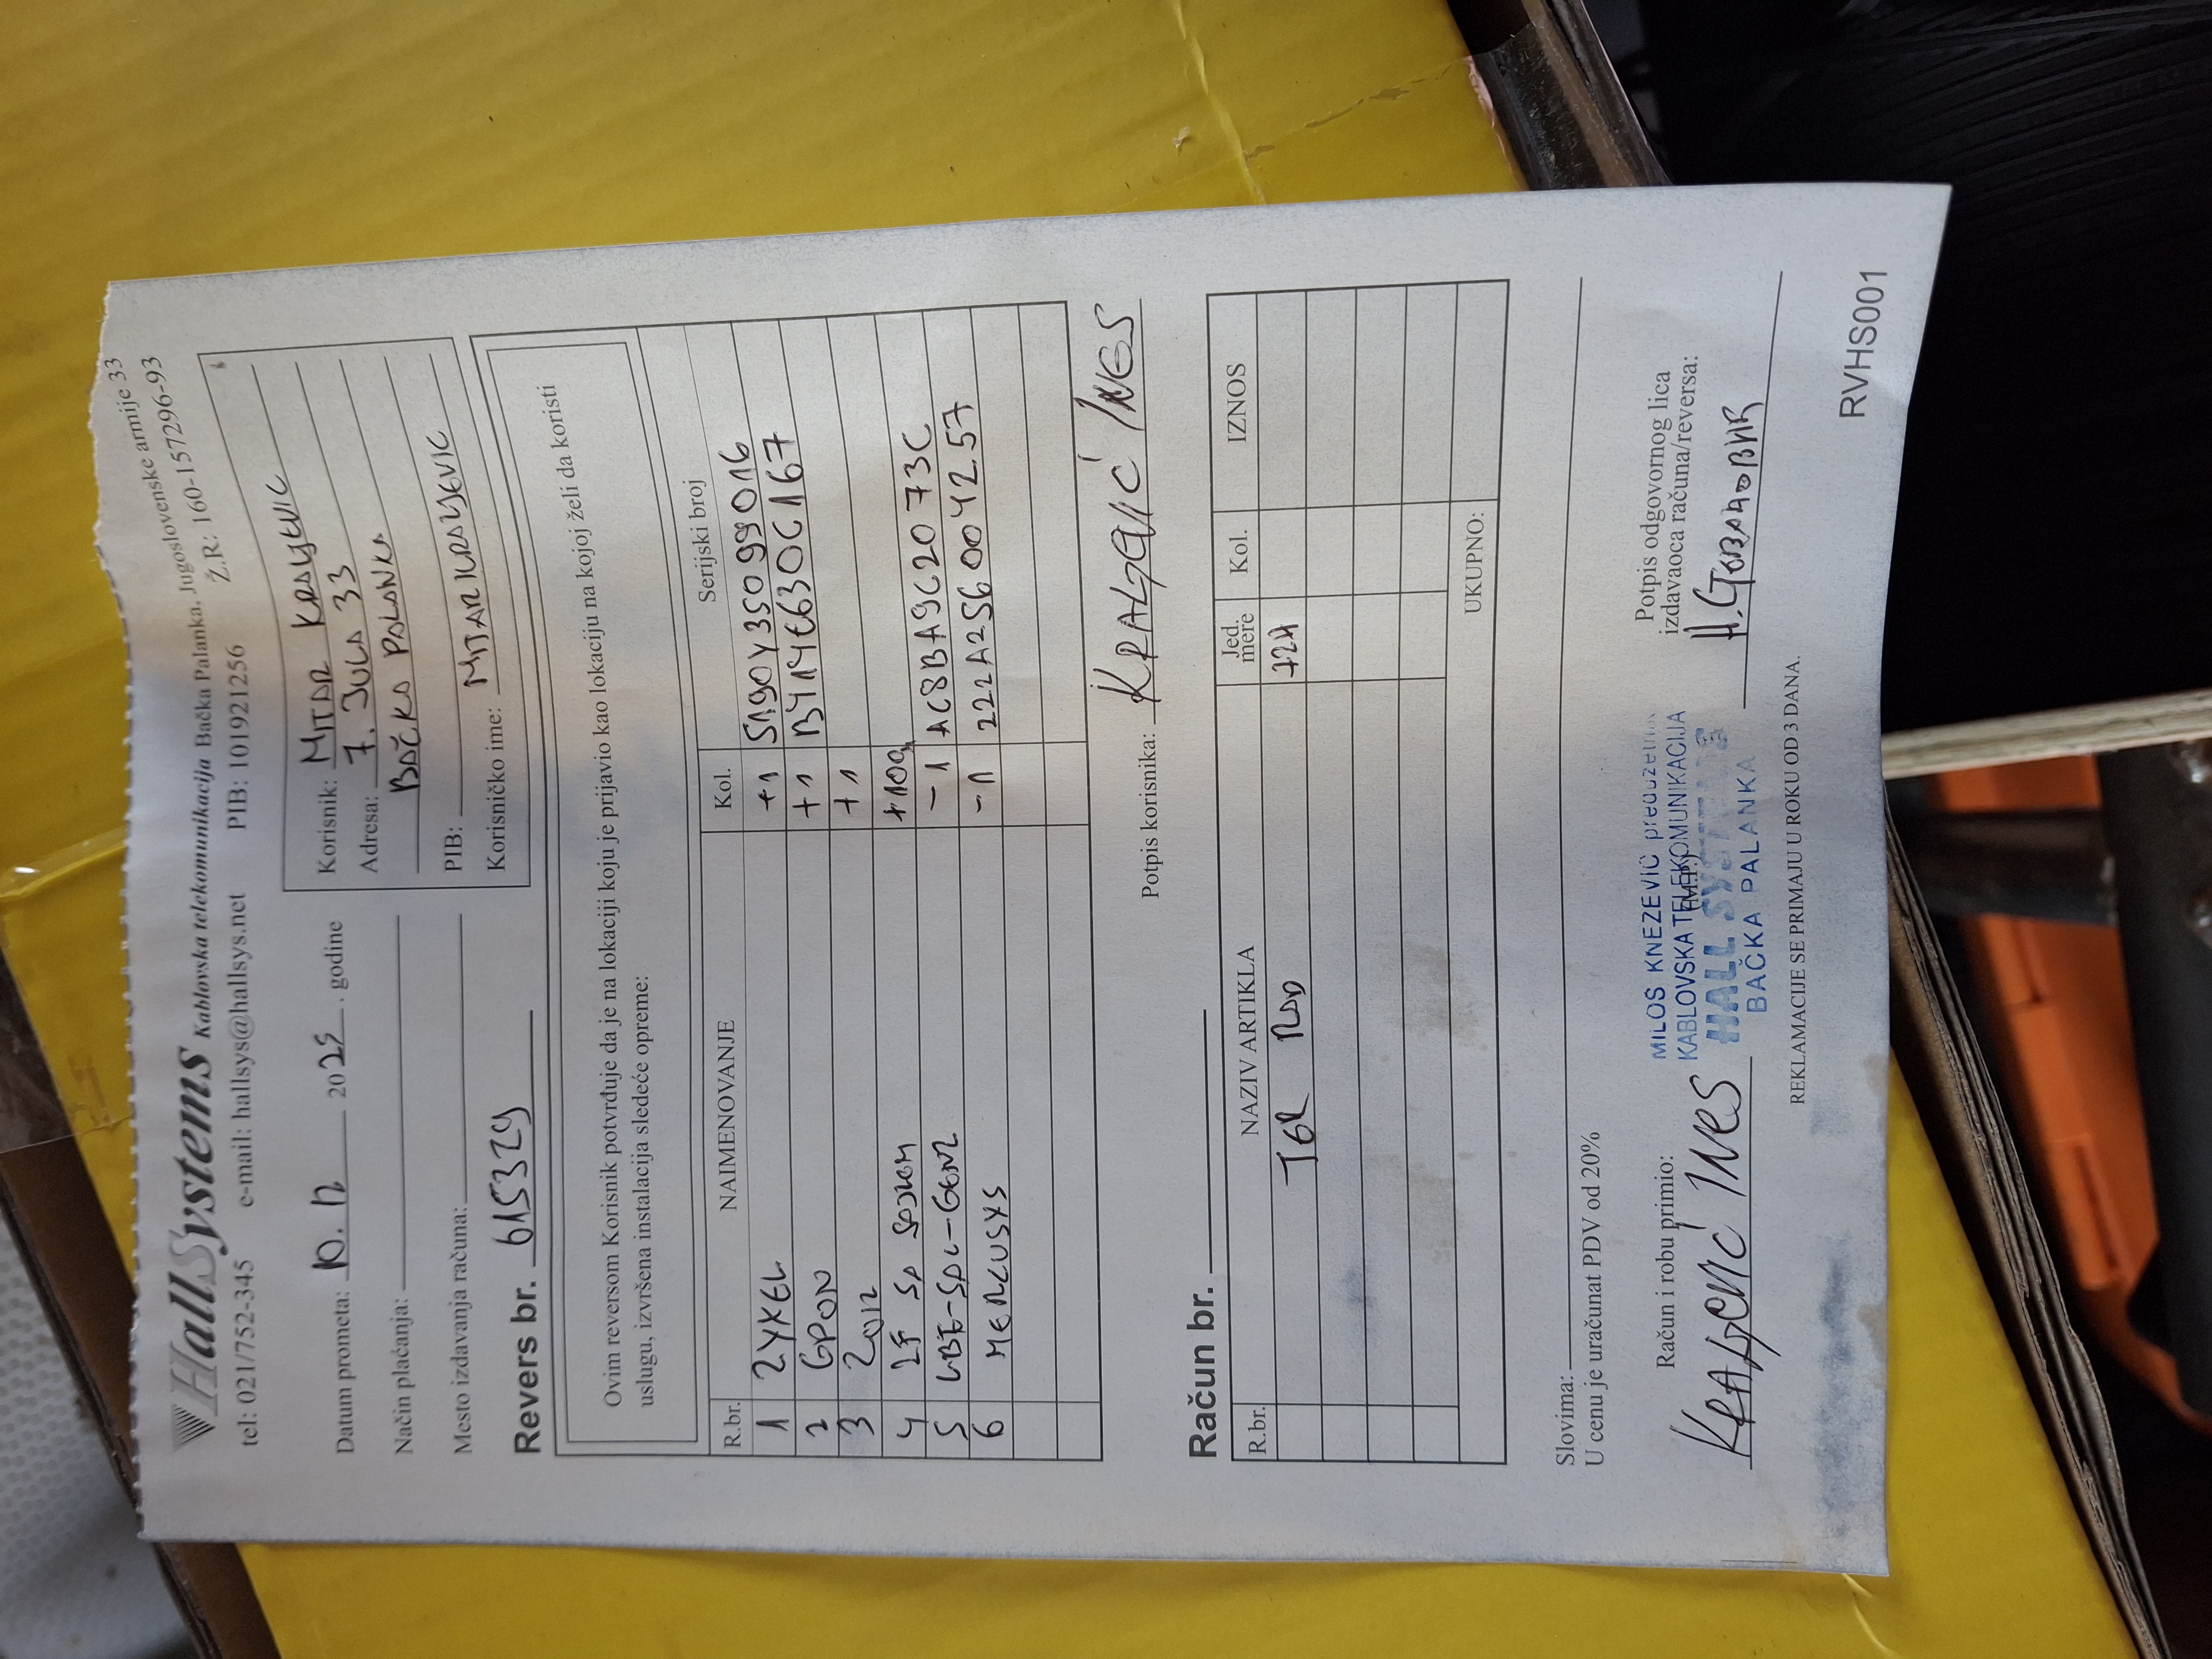 HallSystems Kablovska telekomunikacija Bačka Palanka, Jugoslovenske armije 33
tel: 021/752-345 e-mail: hallsys@hallsys.net PIB: 101921256 Ž.R: 160-1577296-93
Datum prometa: 10. 12 2025. godine
Način plaćanja:
Mesto izdavanja računa:
Korisnik: MITAR KRALJEVIC
Adresa: 7. JULA 33
BAČKA PALANKA
PIB:
Korisničko ime: MITARKRALJEVIC
Revers br. 615329
Ovim reversom Korisnik potvrđuje da je na lokaciji koju je prijavio kao lokaciju na kojoj želi da koristi
uslugu, izvršena instalacija sledeće opreme:
R.br. NAIMENOVANJE Kol. Serijski broj
1 ZYXEL +1 S190Y35099016
2 GPON +1 B414E630C167
3 +1
4 +110m
5 LBE-5AC-GEN2 -1 AC8BA9C2073C
6 MERCUSYS -1 222A256004257
Potpis korisnika: KRALJEVIĆ INES
Račun br.
R.br. NAZIV ARTIKLA Jed. mere Kol. IZNOS
UKUPNO:
Slovima:
U cenu je uračunat PDV od 20%
Račun i robu primio:
KRALJEVIĆ INES
MILOS KNEZEVIĆ preduzetnik
KABLOVSKA TELEKOMUNIKACIJA
(M.P.)
HALL SYSTEMS
BAČKA PALANKA
Potpis odgovornog lica
izdavaoca računa/reversa:
REKLAMACIJE SE PRIMAJU U ROKU OD 3 DANA.
RVHS001